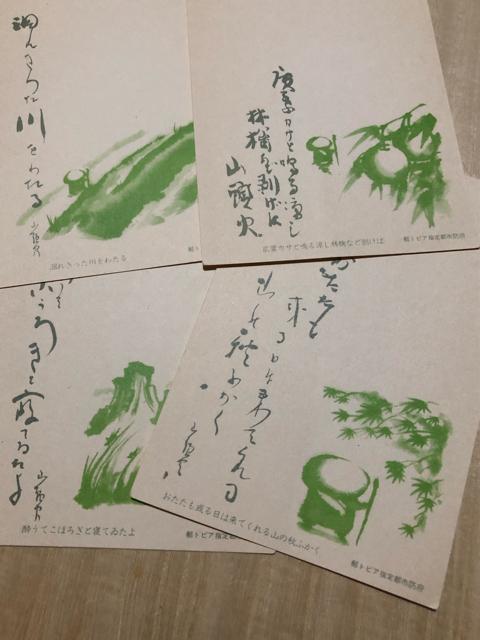 涸れきつた川をわたる
山頭火
涸れきった川をわたる
郵トピ
廣葉カサと鳴る涼し
林檎など剥げば
山頭火
広葉カサと鳴る涼し林檎など剥げば
郵トピア指定都市防府
ほろぎと寝てゐたよ
山頭火
酔うてこほろぎと寝てゐたよ
郵トピア指定都
来てくれる
山の秋ふかく
山頭火
おたたも或る日は来てくれる山の秋ふかく
郵トピア指定都市防府